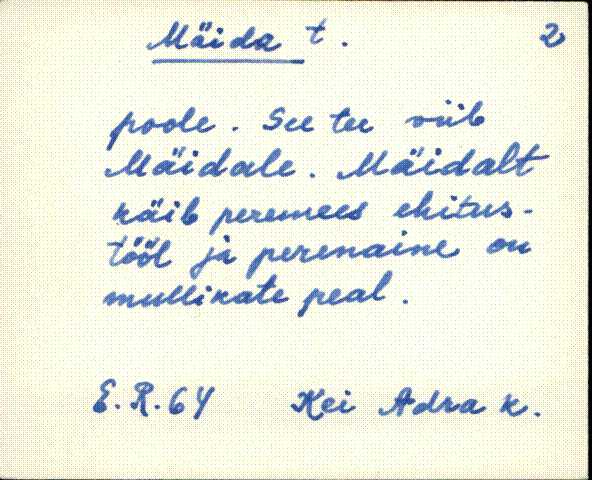 Mäida t. 2
poole. See tee viib
Mäidale. Mäidalt
käib peremees ehitus-
tööl ja perenaine on
mullikate peal.
E.R.64 Kei Adra k.